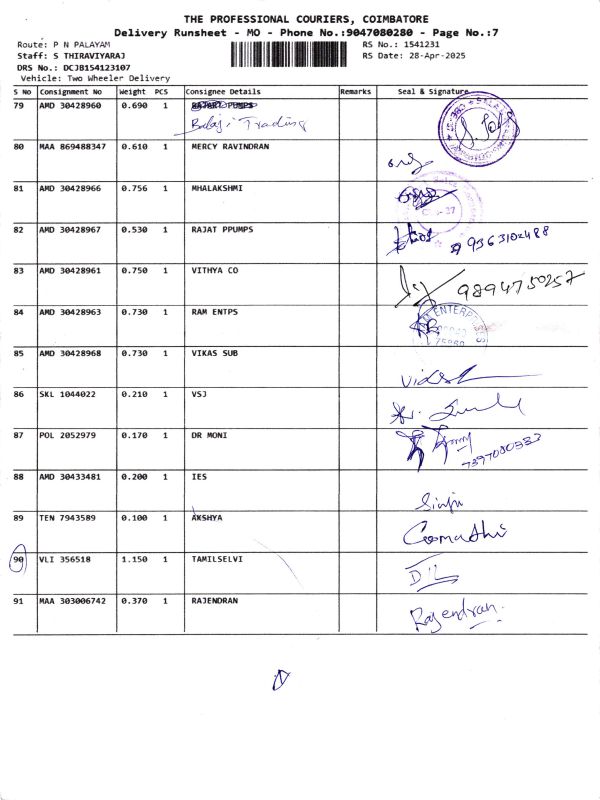 THE PROFESSIONAL COURIERS, COIMBATORE
Delivery Runsheet - MO - Phone No.:9047080280 - Page No.:7
Route: P N PALAYAM
RS No.: 1541231
Staff: S THIRAVIYARAJ
RS Date: 28-Apr-2025
DRS No.: DCJB154123107
Vehicle: Two Wheeler Delivery
S No Consignment No Weight PCS Consignee Details Remarks Seal & Signature
79 AMD 30428960 0.690 1
Balaji Trading
80 MAA 869488347 0.610 1 MERCY RAVINDRAN
81 AMD 30428966 0.756 1 MHALAKSHMI
82 AMD 30428967 0.530 1 RAJAT PPUMPS 9363102488
83 AMD 30428961 0.750 1 VITHYA CO 9894750257
84 AMD 30428963 0.730 1 RAM ENTPS
85 AMD 30428968 0.730 1 VIKAS SUB
86 SKL 1044022 0.210 1 VSJ
87 POL 2052979 0.170 1 DR MONI
88 AMD 30433481 0.200 1 IES
89 TEN 7943589 0.100 1 AKSHYA Gomathi
90 VLI 356518 1.150 1 TAMILSELVI
91 MAA 303006742 0.370 1 RAJENDRAN Rajendran.